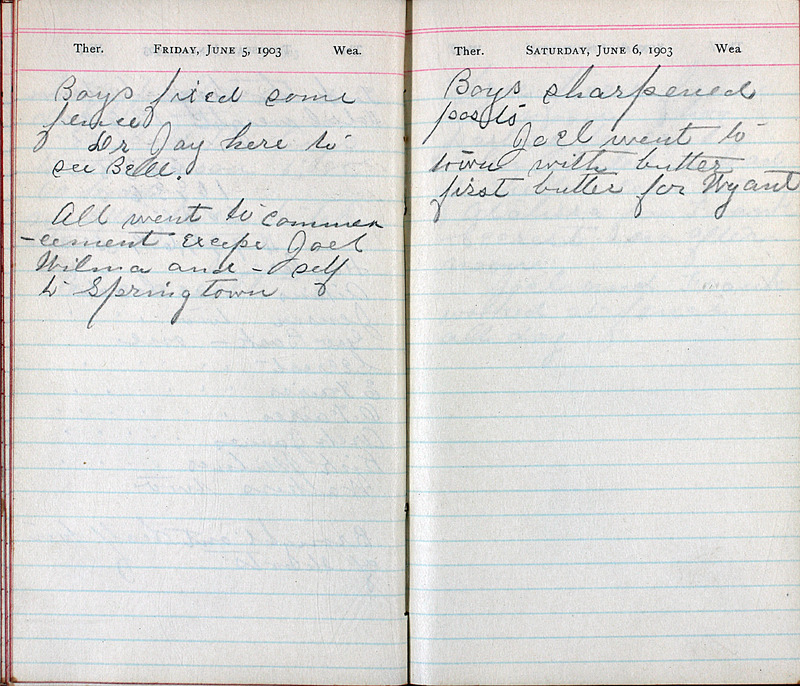 Ther. FRIDAY, JUNE 5, 1903 Wea.
Boys fixed some
fence
Dr Jay here to
see Bell.
All went to commen
-cement Excepe Joel
Wilma and - self
to Springtown
Ther. SATURDAY, JUNE 6, 1903 Wea
Boys sharpened
posts
Joel went to
town with butter
first butter for Wyant